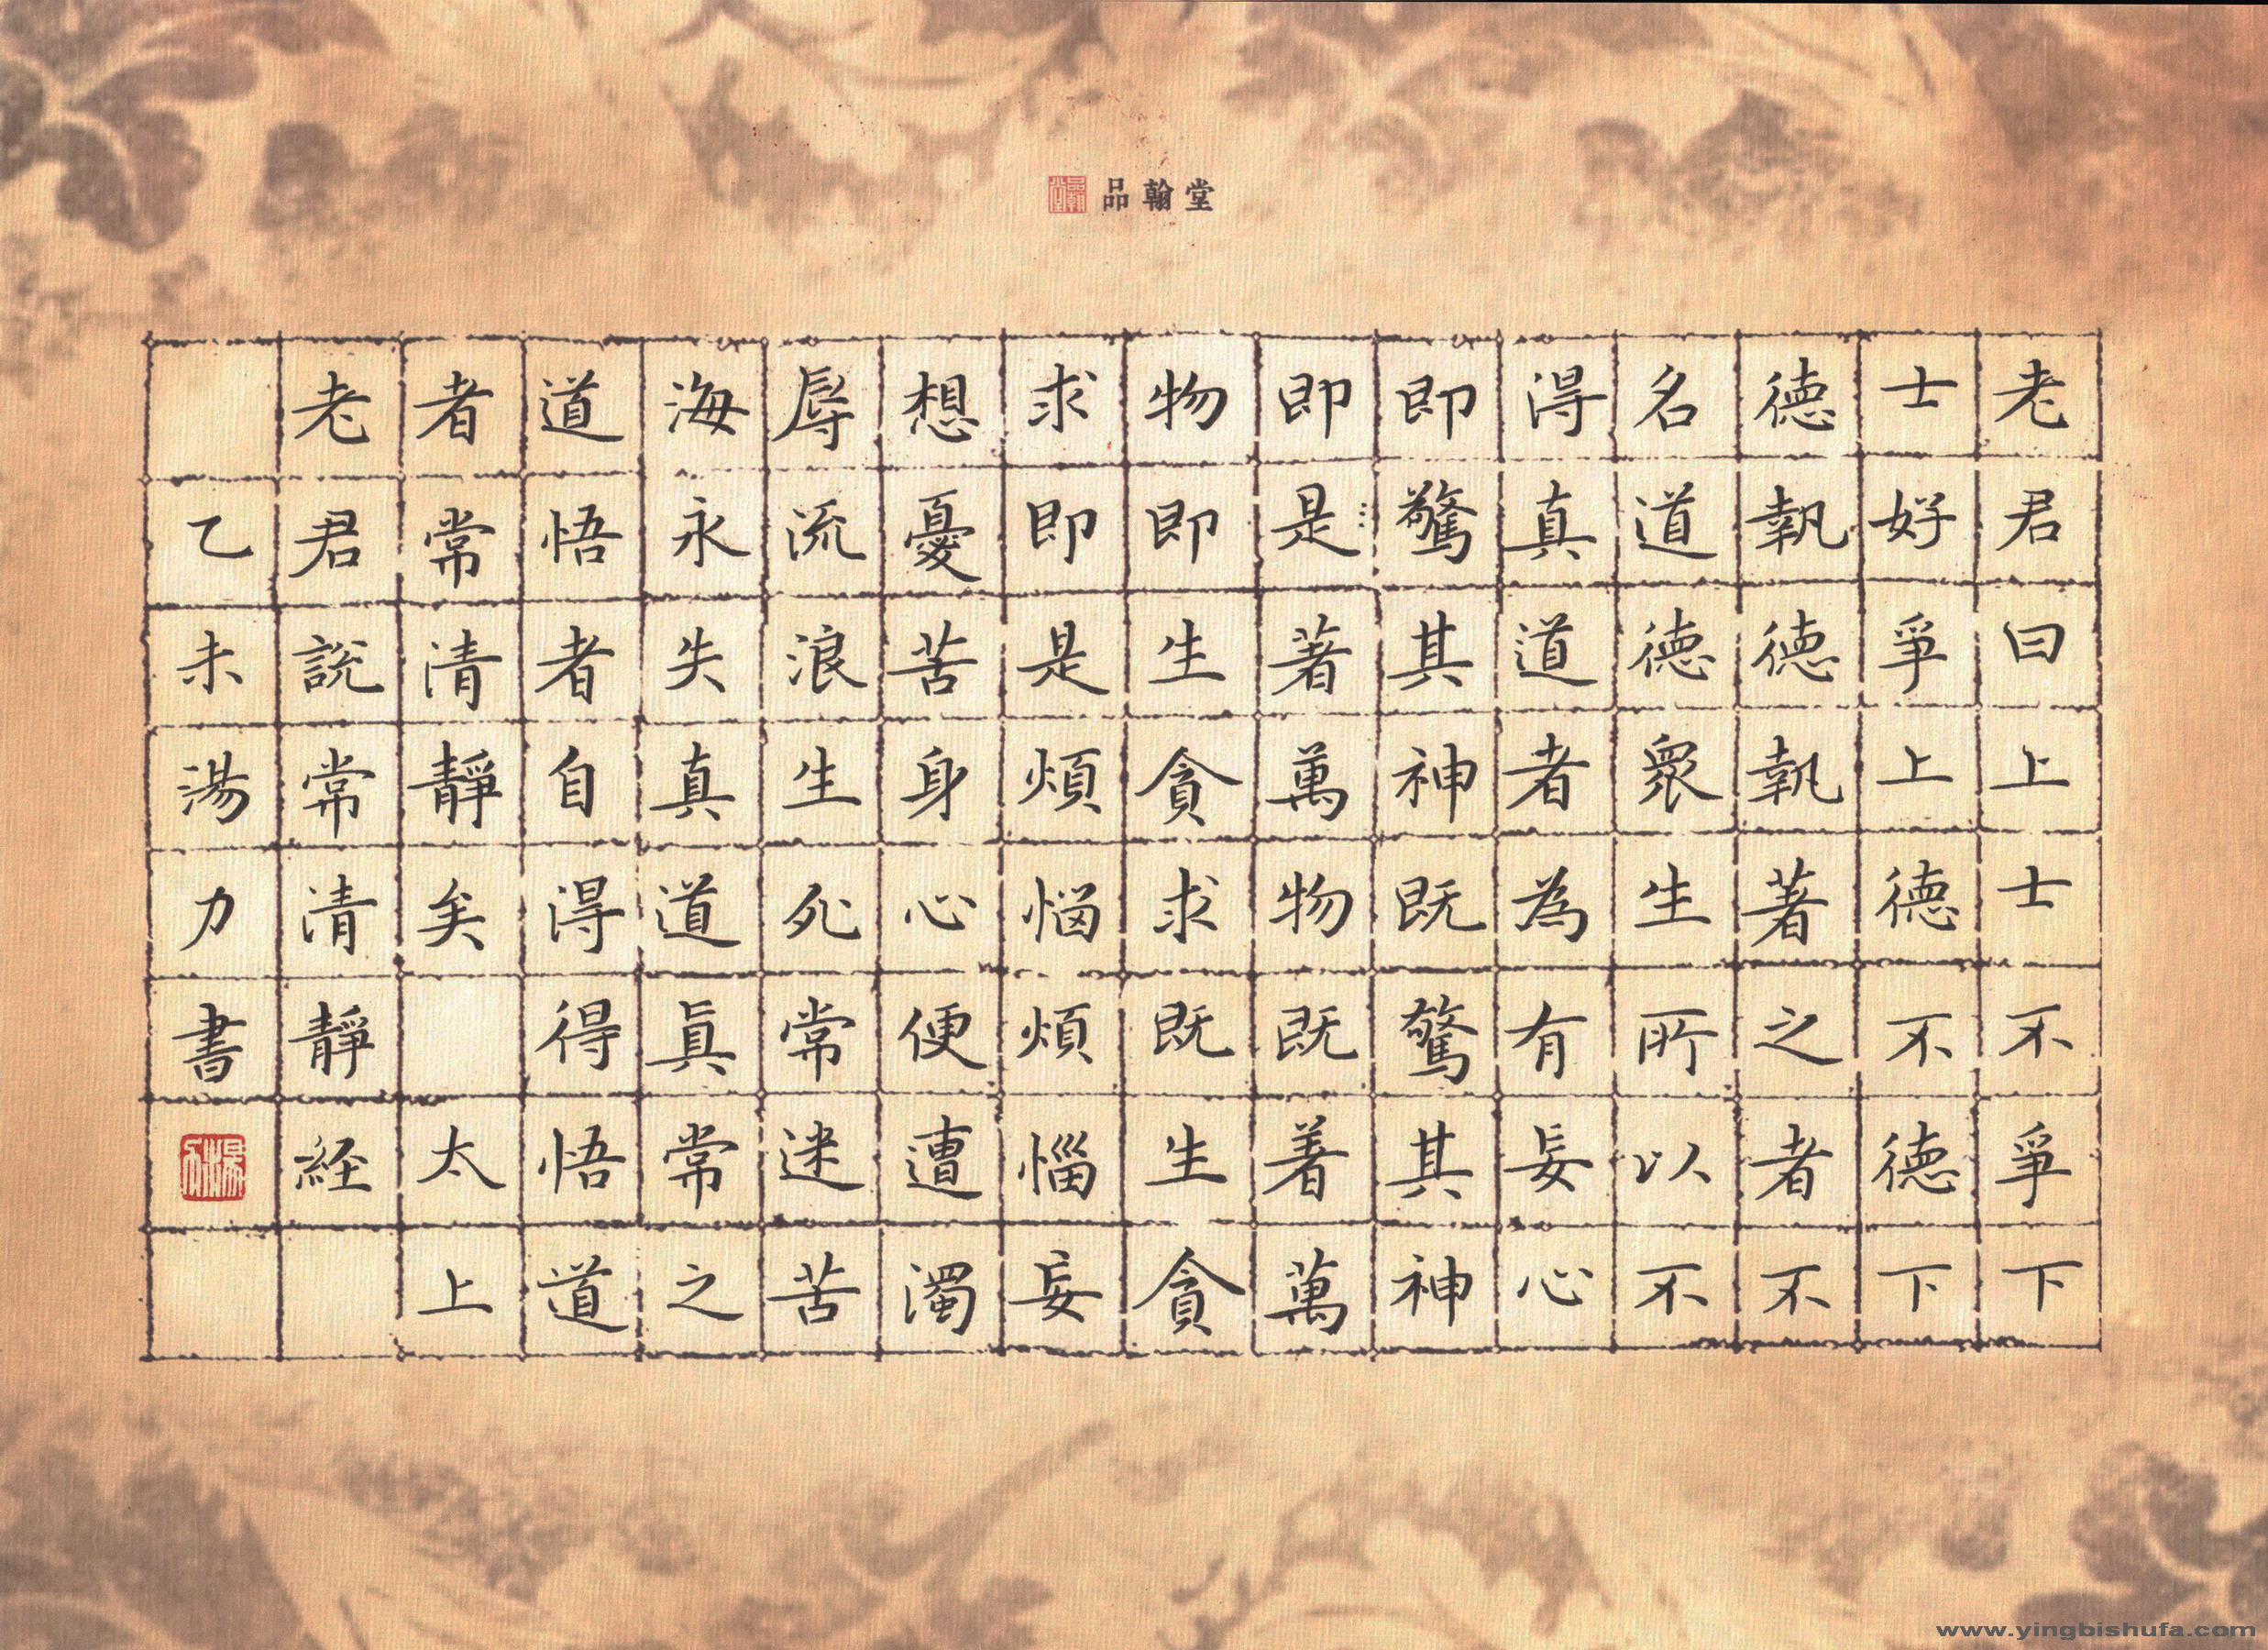 品翰堂
老君曰上士不爭下
士好爭上德不德下
德執德執著之者不
名道德衆生所以不
得真道者為有妄心
即驚其神既驚其神
即是著萬物既着萬
物即生貪求既生貪
求即是煩惱煩惱妄
想憂苦身心便遭濁
辱流浪生死常迷苦
海永失真道眞常之
道悟者自得得悟道
者常清靜矣 太上
老君説常清靜経
乙未湯力書
www.yingbishufa.com